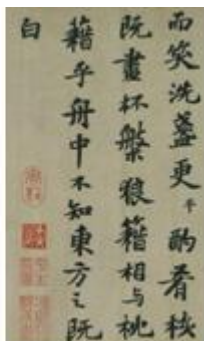 而笑洗盞更酌肴核
既盡杯槃狼籍相與枕
籍乎舟中不知東方之既
白